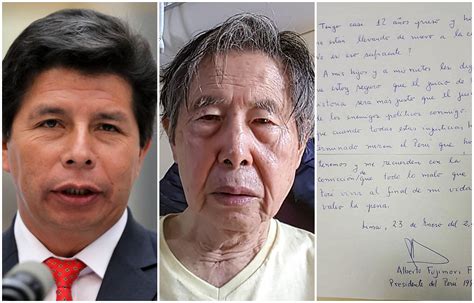 Tengo casi 12 años preso y ho
están llevando de nuevo a la c
es eso suficiente?
A mis hijos y a mis nietos les dig
estoy seguro que el juicio de
será más justo que el jui
los enemigos políticos conmigo
cuando todas estas injusticias h
terminado
me recuerden con la
convicción de que todo lo malo que
viví al final de mi vida
valió la pena.
Lima, 23 de Enero del 2
Alberto Fujimori F
Presidente del Perú 199